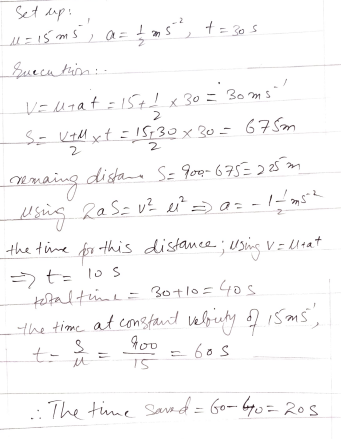 Set up:
u = 15 ms⁻¹, a = 1/2 ms⁻², t = 30 s
Execution:.
V = u+at = 15+1/2 x 30 = 30 ms⁻¹
S = V+u/2 x t = 15+30/2 x 30 = 675m
remaing distan S = 900-675 = 225m
using 2aS = v² u² => a = -1 1/2 ms⁻²
the time for this distance; using v = u+at
=> t = 10 s
total time = 30+10 = 40s
the time at constant velocity of 15ms⁻¹,
t = S/u = 900/15 = 60s
∴ The time saved = 60-40 = 20s